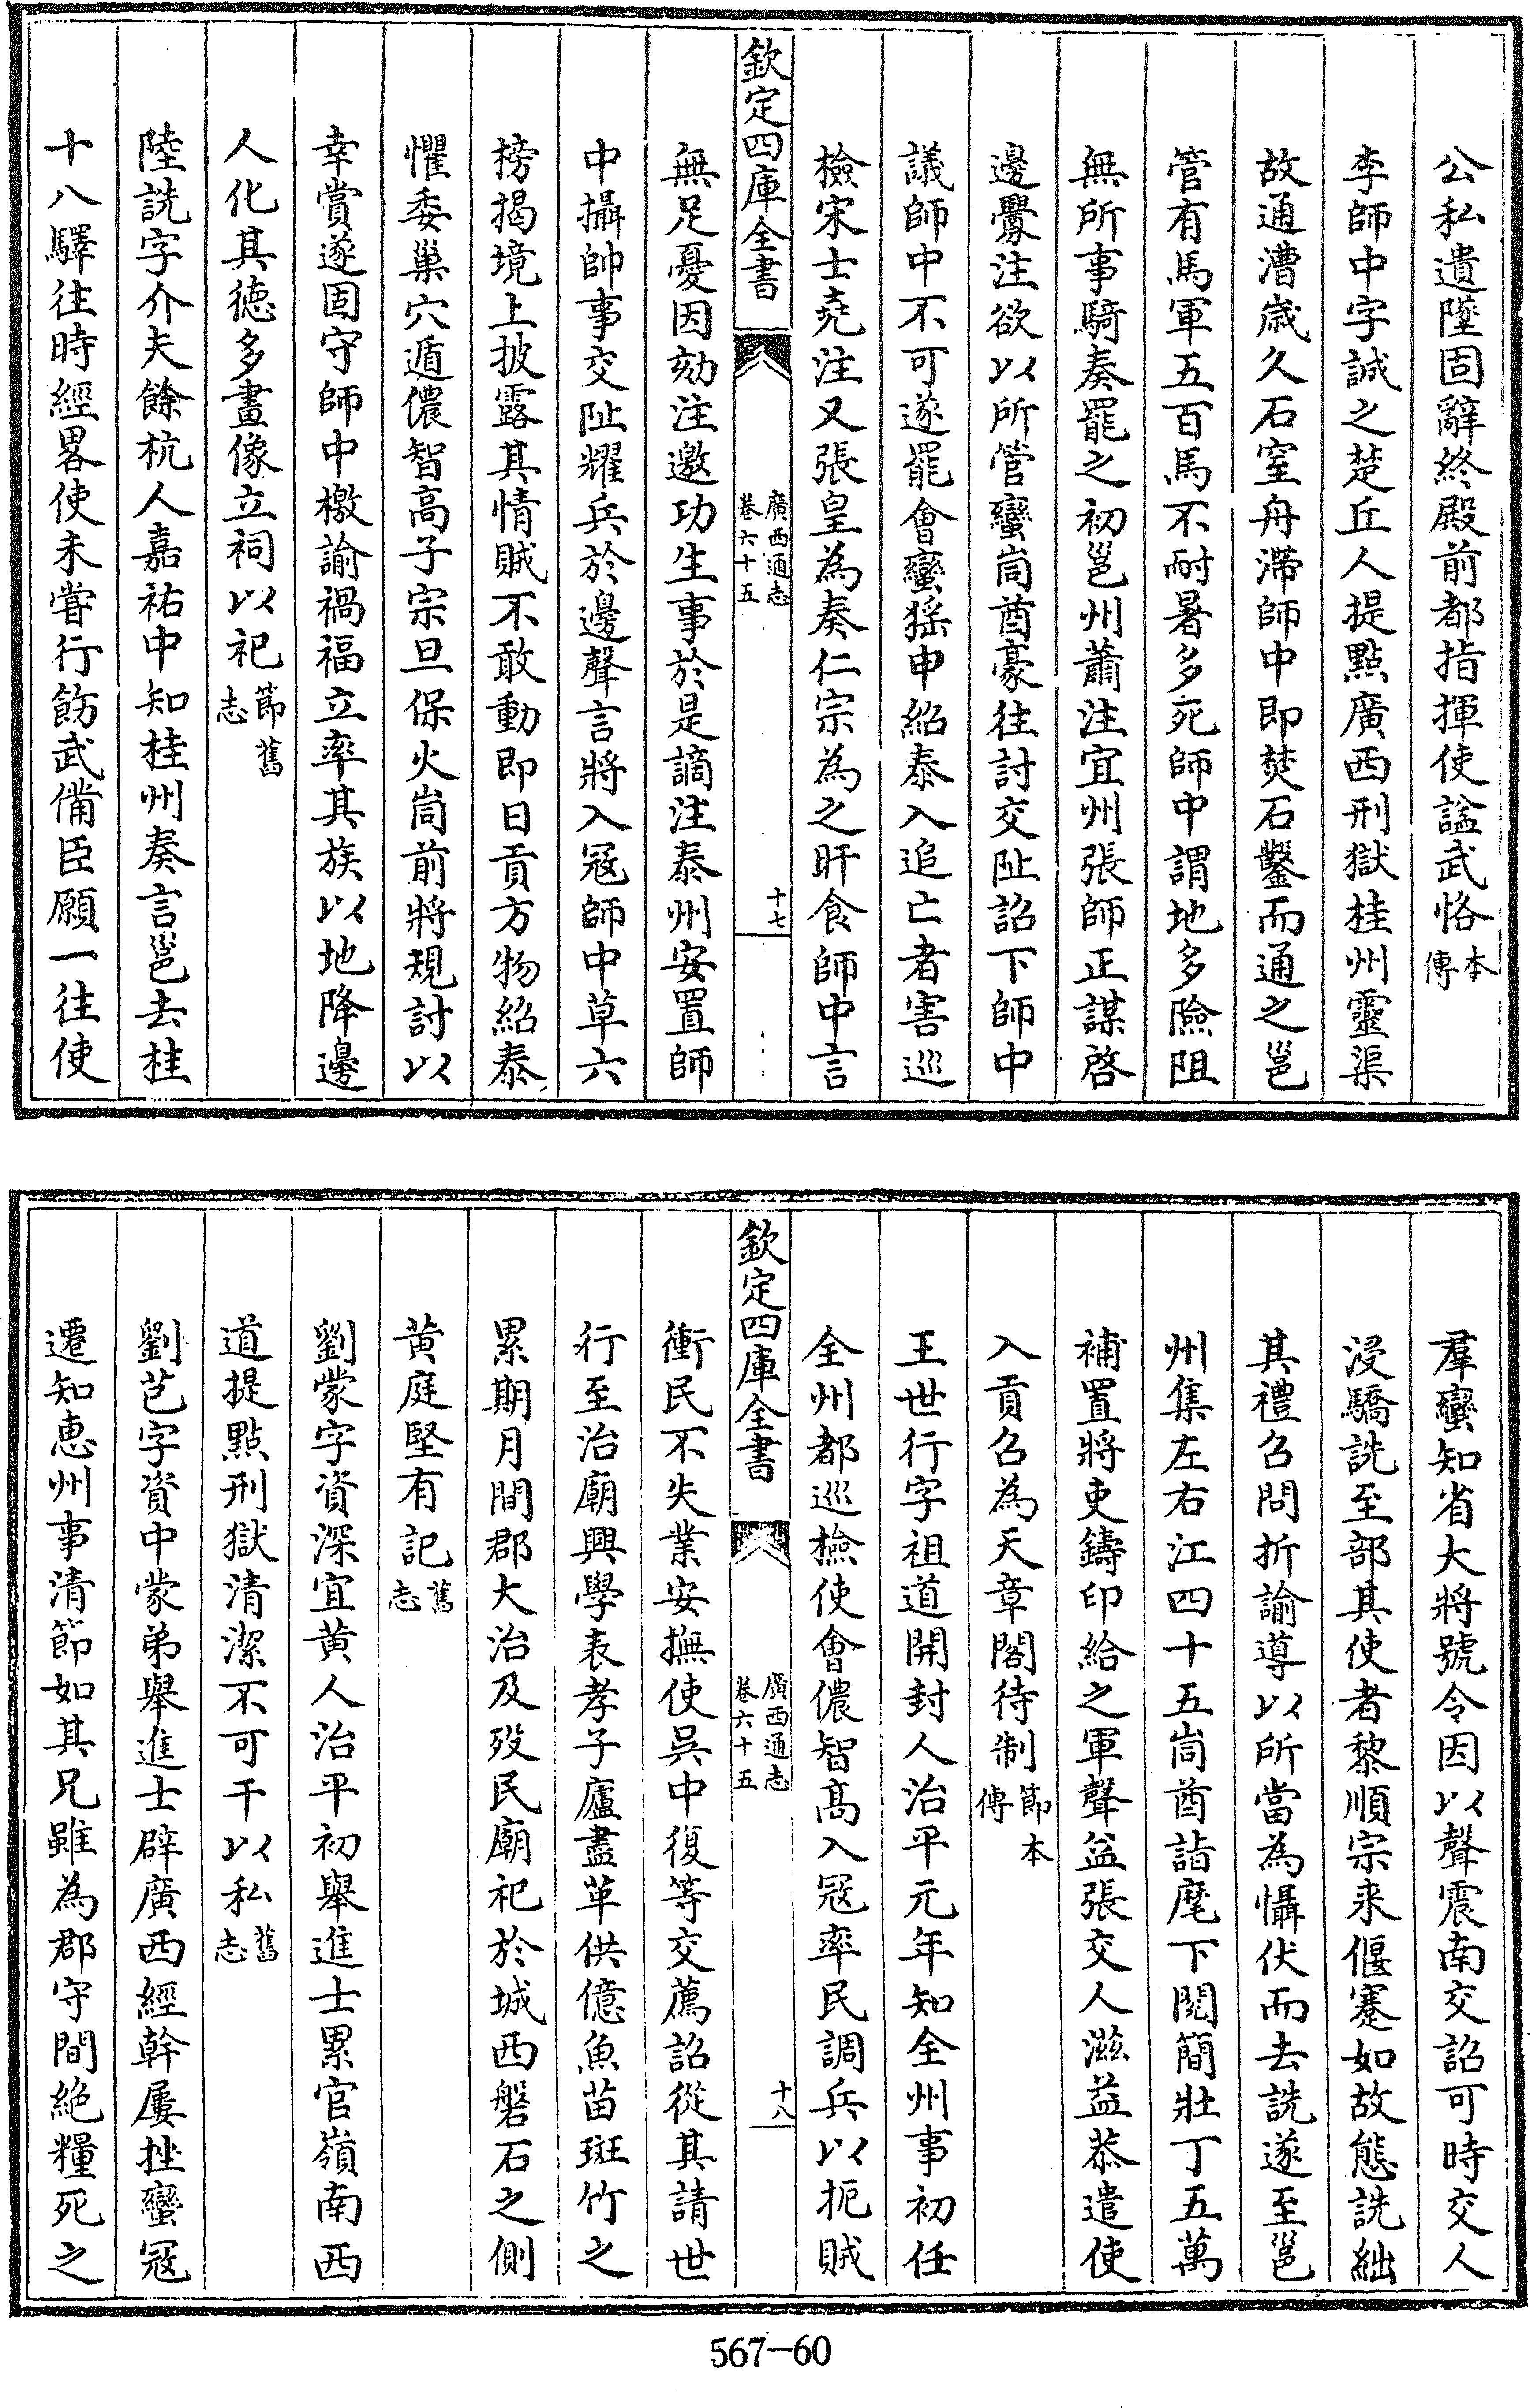 公私遺墜固辭終殿前都指揮使諡武恪本傳
李師中字誠之楚丘人提點廣西刑獄桂州靈渠
故通漕歳久石窒舟滯師中即焚石鑿而通之邕
管有馬軍五百馬不耐暑多死師中謂地多險阻
無所事騎奏罷之初邕州蕭注宜州張師正謀啓
邊釁注欲以所管蠻峝酋豪往討交阯詔下師中
議師中不可遂罷會蠻猺申紹泰入追亡者害巡
檢宋士堯注又張皇為奏仁宗為之旰食師中言
欽定四庫全書
廣西通志
卷六十五
十七
無足憂因劾注邀功生事於是謫注泰州安置師
中攝帥事交阯耀兵於邊聲言將入冦師中草六
榜揭境上披露其情賊不敢動即日貢方物紹泰
懼委巢穴遁儂智高子宗旦保火峝前將規討以
幸賞遂固守師中檄諭禍福立率其族以地降邊
人化其徳多畫像立祠以祀節舊志
陸詵字介夫餘杭人嘉祐中知桂州奏言邕去桂
十八驛往時經畧使未嘗行飭武備臣願一往使
羣蠻知省大將號令因以聲震南交詔可時交人
浸驕詵至部其使者黎順宗来偃蹇如故態詵絀
其禮召問折諭導以所當為懾伏而去詵遂至邕
州集左右江四十五峝酋詣麾下閱簡壯丁五萬
補置將吏鑄印給之軍聲益張交人滋益恭遣使
入貢召為天章閣待制節本傳
王世行字祖道開封人治平元年知全州事初任
全州都巡檢使會儂智高入冦率民調兵以扼賊
欽定四庫全書
廣西通志
卷六十五
十八
衝民不失業安撫使吳中復等交薦詔從其請世
行至治廟興學表孝子廬盡革供億魚苗斑竹之
累期月間郡大治及歿民廟祀於城西磐石之側
黄庭堅有記舊志
劉蒙字資深宜黄人治平初舉進士累官嶺南西
道提點刑獄清潔不可干以私舊志
劉芑字資中蒙弟舉進士辟廣西經幹屢挫蠻冦
遷知惠州事清節如其兄雖為郡守間絶糧死之
567-60